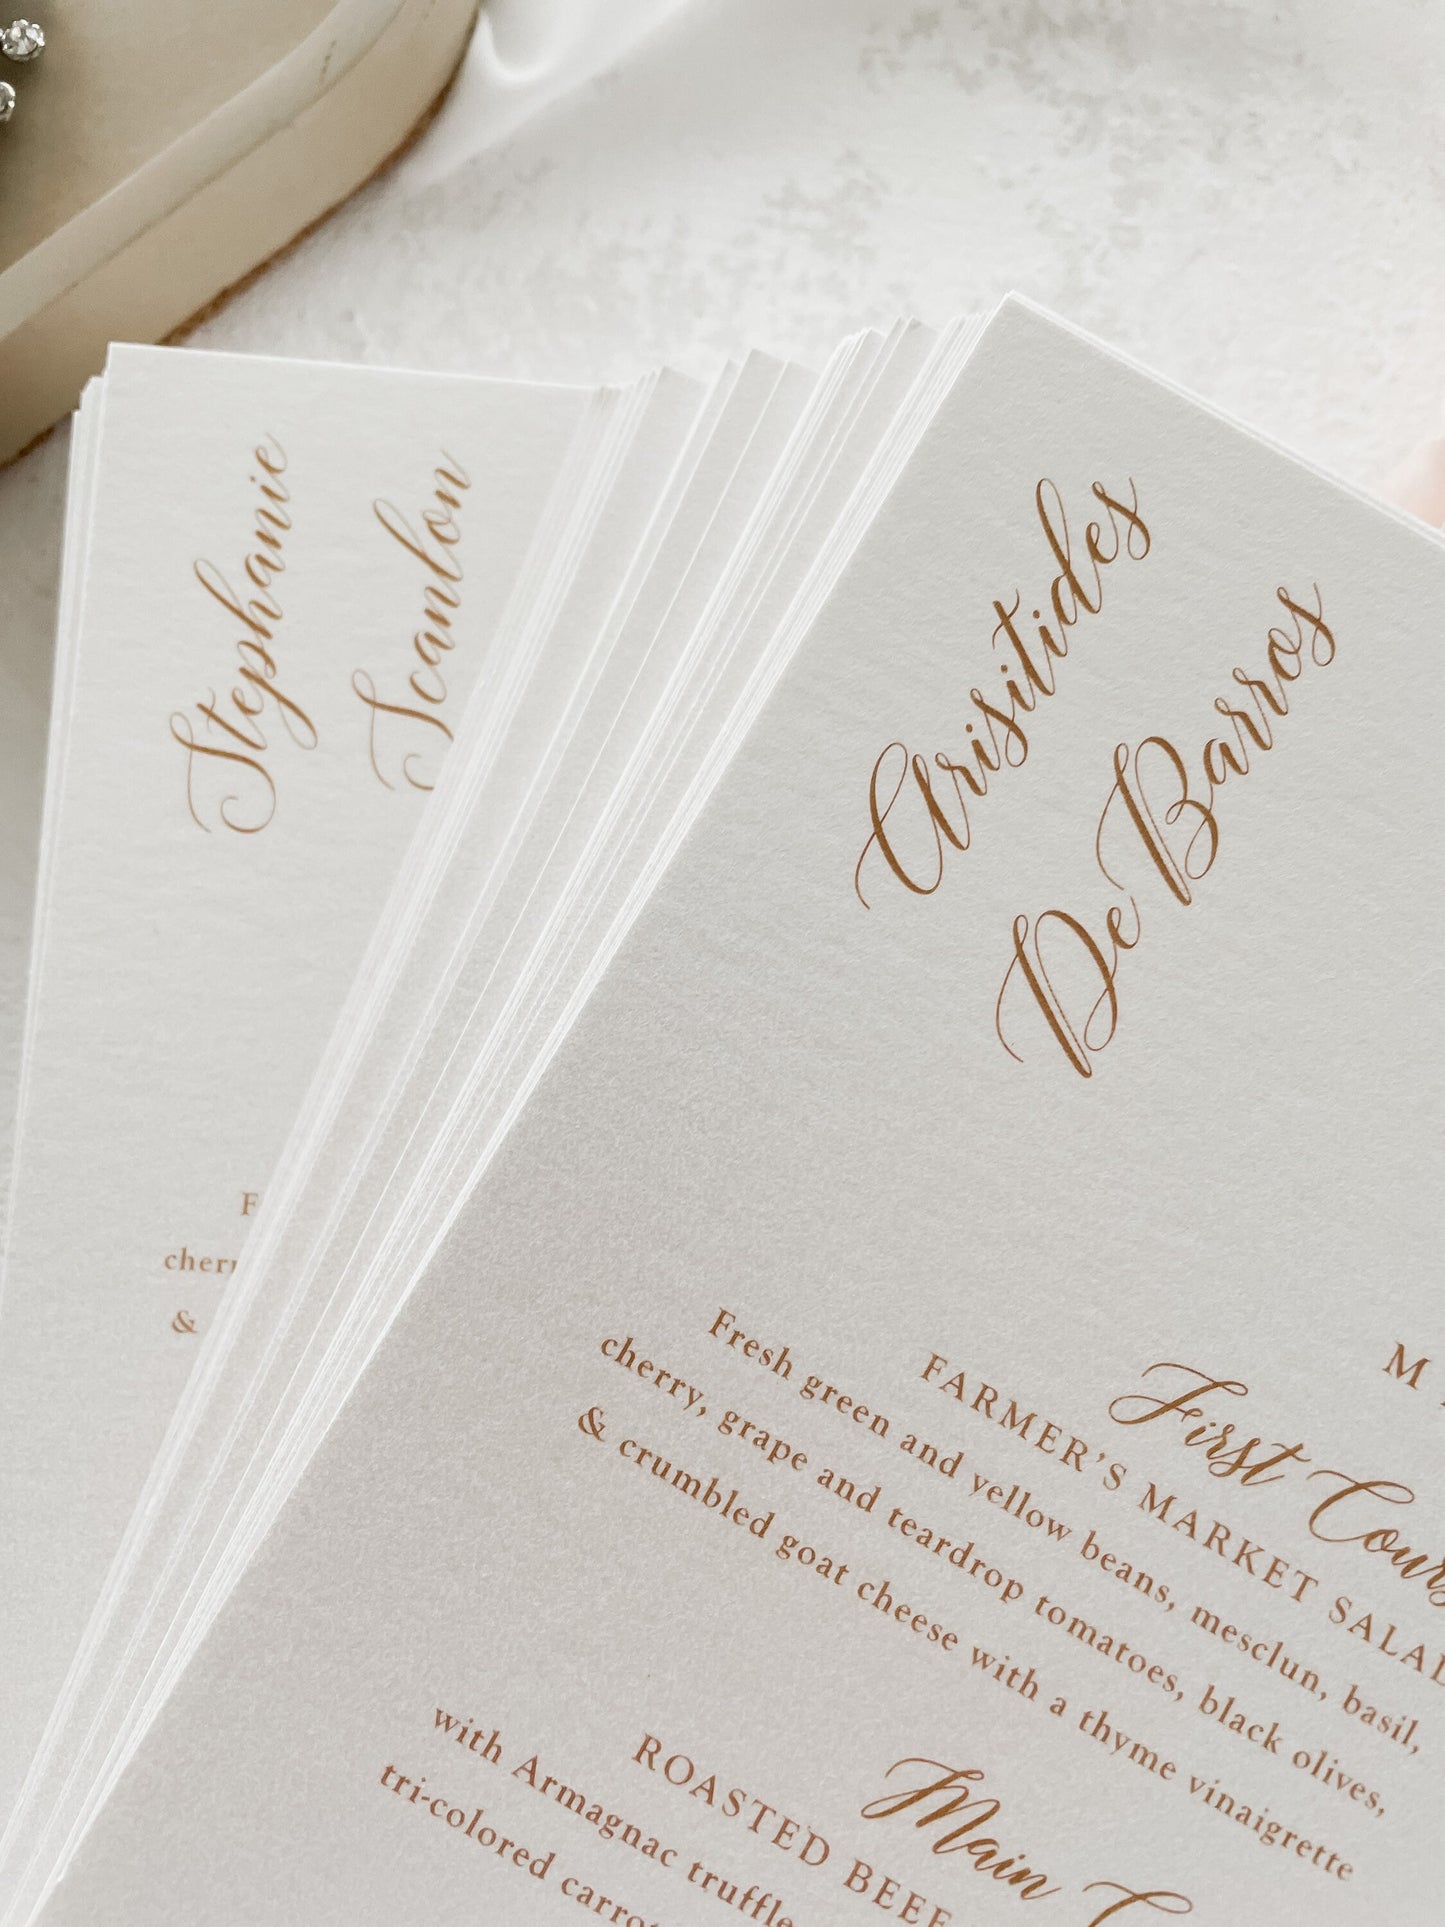 Stephanie
Scanlon
F
cherr
&
Aristides
De Barros
M
First Cours
FARMER'S MARKET SALAD
Fresh green and yellow beans, mesclun, basil,
cherry, grape and teardrop tomatoes, black olives,
& crumbled goat cheese with a thyme vinaigrette
Main C
ROASTED BEEF
with Armagnac truffle
tri-colored carro